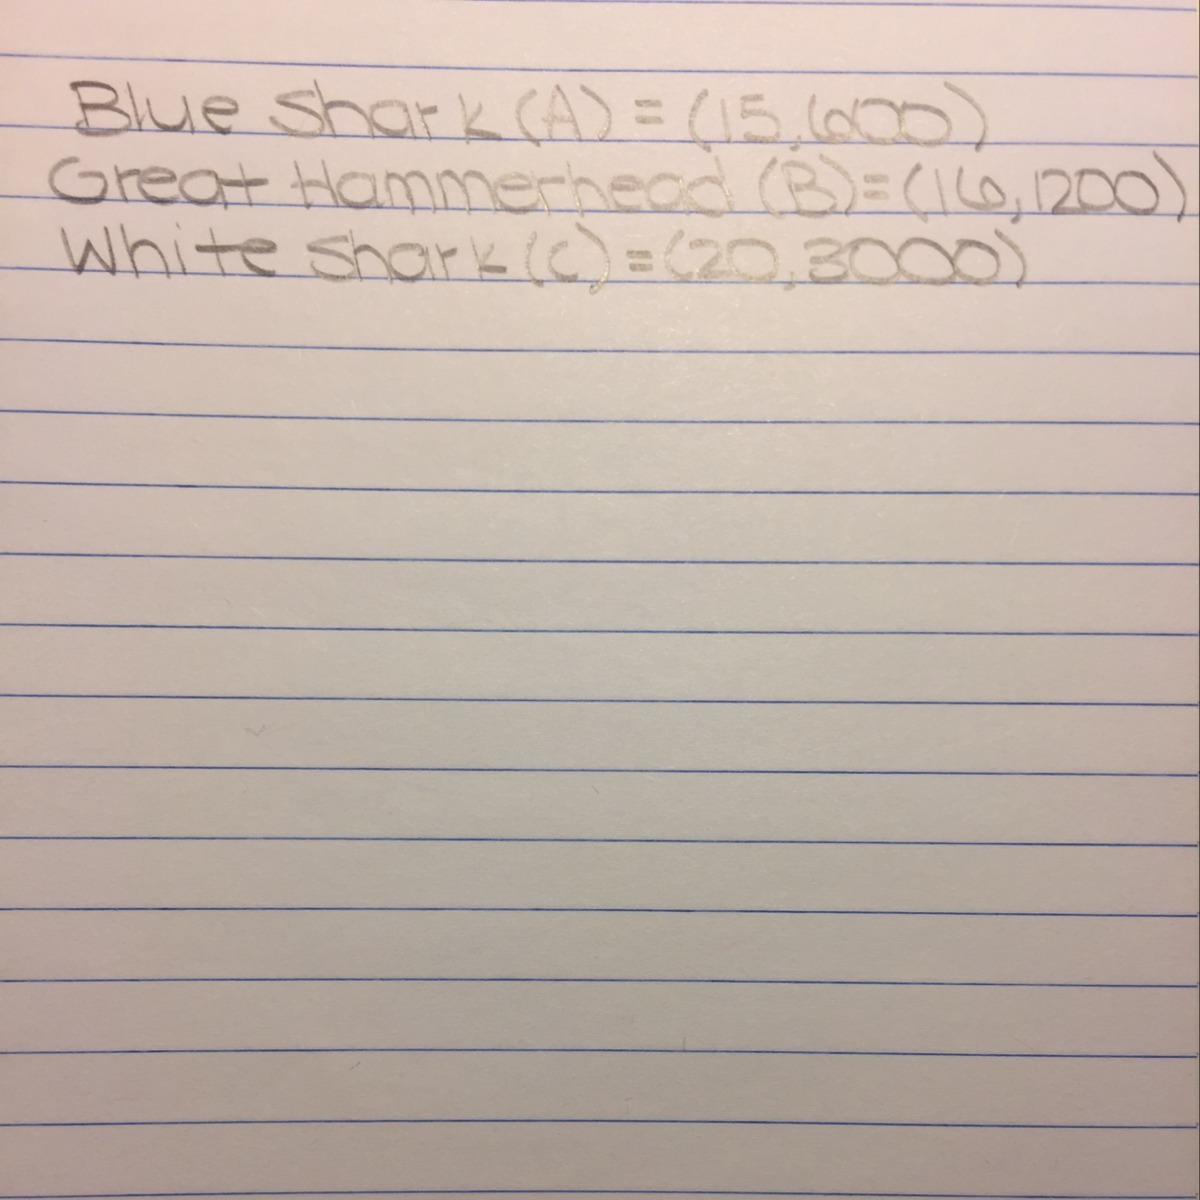 Blue Shark (A) = (15,600)
Great Hammerhead (B) = (16,1200)
White Shark (C) = (20,3000)